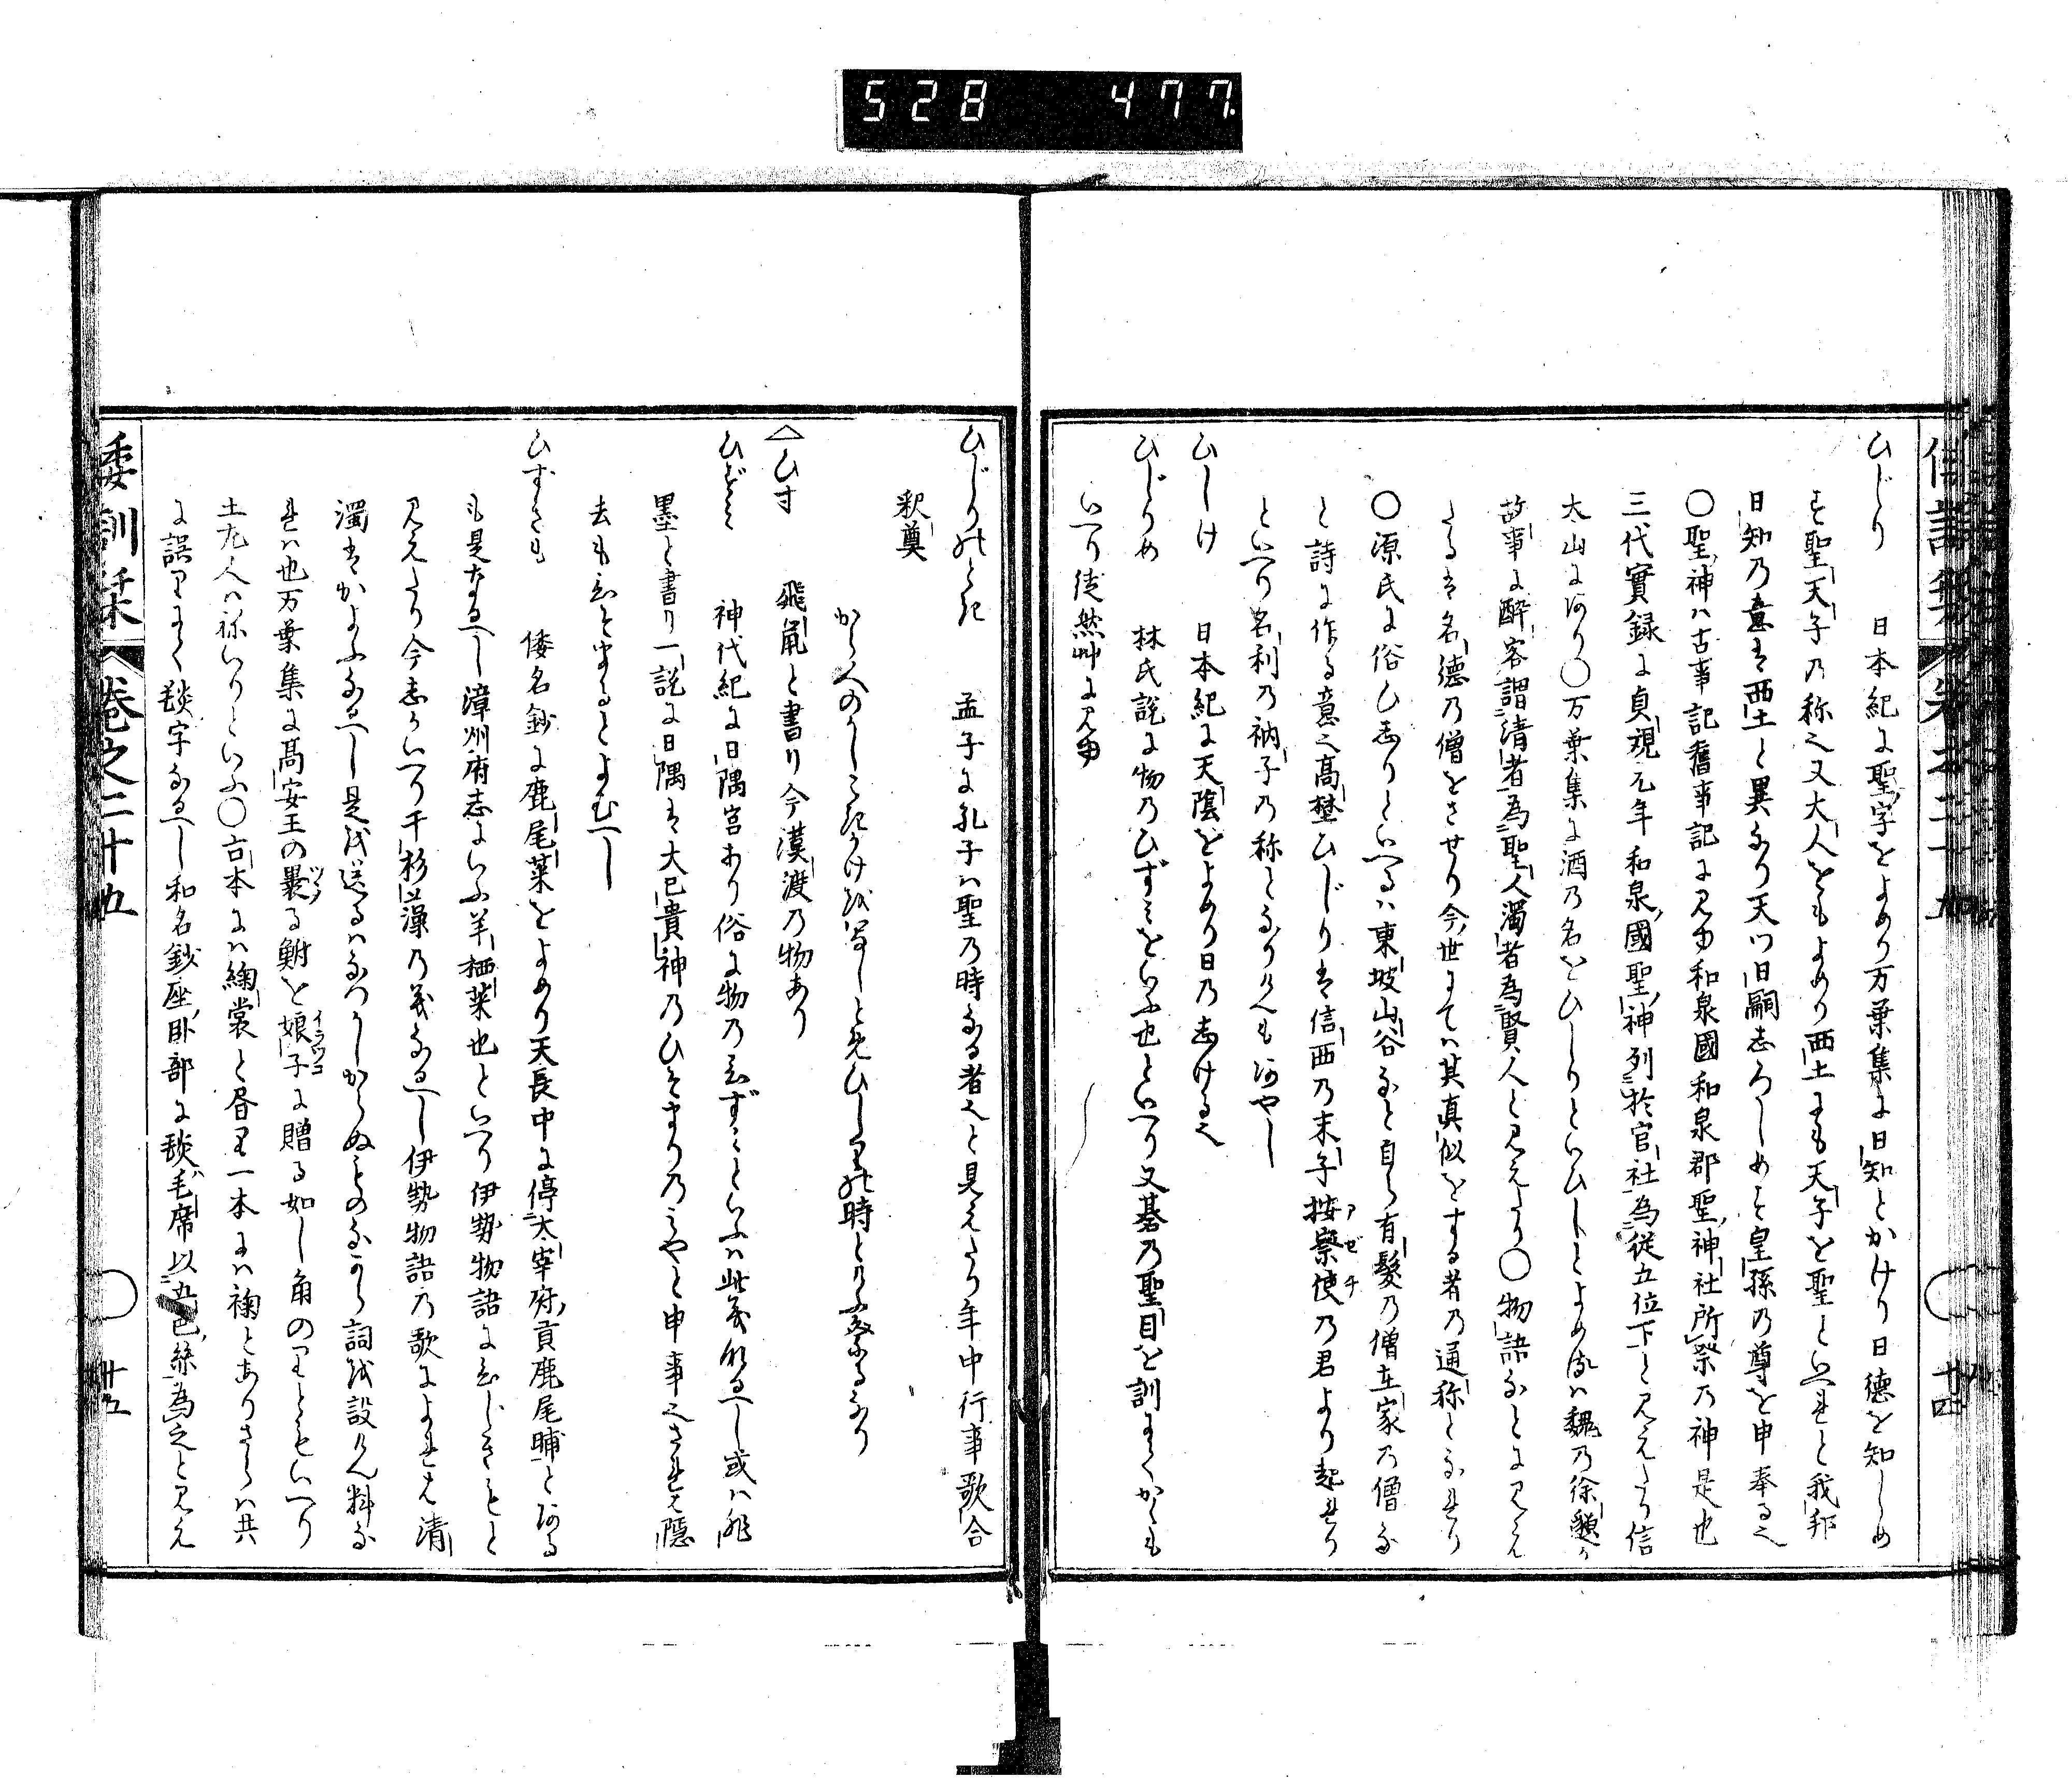 528 477
ひじり 日本紀に聖字をよめり万葉集に日知とかけり日徳を知しめ
す聖天子の称也又大人をもよめり西土にも天子を聖といへれと我邦
日知の意は西土と異なり天つ日嗣しろしめす皇孫の尊を申奉る也
○聖神は古事記舊事記に見ゆ和泉國和泉郡聖神社所祭の神是也
三代實録に貞観元年和泉國聖神列於官社為従五位下と見えたり信
太山にあり○万葉集に酒の名をひしりといひしとよめるは魏の徐邈か
故事に酔客謂清者為聖人濁者為賢人と見えたり○物語なとに見え
たるは名徳の僧をさせり今世にては其真似をする者の通称となれり
○源氏に俗ひしりといへるは東坡山谷なと自ら有髪の僧在家の僧な
と詩に作る意也高埜ひじりは信西の末子按察使の君より起れり
アゼチ
といへり名利の衲子の称となりけんもあやし
ひしけ 日本紀に天陰をよめり日のしける也
ひじりめ 林氏説に物のひずみをいふ也といへり又碁の聖目を訓にてかくも
いへり徒然艸に見ゆ
十四
ひじりのとき 孟子に孔子は聖の時なる者也と見えたり年中行事歌合
釈奠
から人のかしこきかけを写しとめひしりの時とけふ祭るなり
△ひす 飛甭と書り今漢渡の物あり
ひずみ 神代紀に日隅宮あり俗に物のひずみといふは此義成へし或は飛
墨と書り一説に日隅は大已貴神のひそまりのみやと申事也されは隠
去もひそまるとよむへし
ひずきも 倭名鈔に鹿尾菜をよめり天長中に停太宰府貢鹿尾脯とある
も是なるへし漳州府志にいふ羊栖菜也といへり伊勢物語にひじきもと
見えたり今しかいへり干杉藻の義なるへし伊勢物語の歌によれは清
濁はかよふなるへし是を送るはなつかしからぬものなから詞を設けん料な
れは也万葉集に高安王の裹る鮒を娘子に贈る如し角のりともいへり
ツヽメ イラツコ
土左人はねいりといふ○古本には絢裳と昏り一本には裪とありさらは共
に誤りにて毯字なるへし和名鈔座臥部に毯毛席以五色絲為之と見え
倭訓栞 巻之二十五
廿五